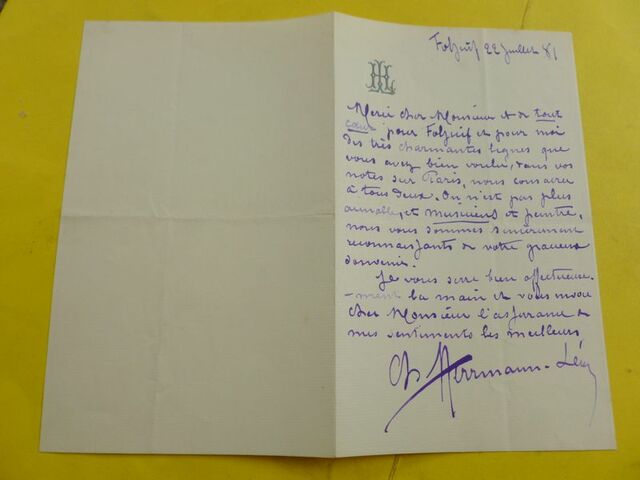 22 juillet 81
HL
Merci cher Monsieur et de tout
cœur pour et pour moi
des très charmantes lignes que
vous avez bien voulu, dans vos
notes sur Paris, nous consacrer
à tous deux. On n'est pas plus
aimable, et musiciens et peintre,
nous vous sommes sincèrement
reconnaissants de votre gracieux
souvenir.
Je vous serre bien affectueuse-
-ment la main et vous envoie
cher Monsieur l'assurance de
mes sentiments les meilleurs
Ch Herrmann-Léon